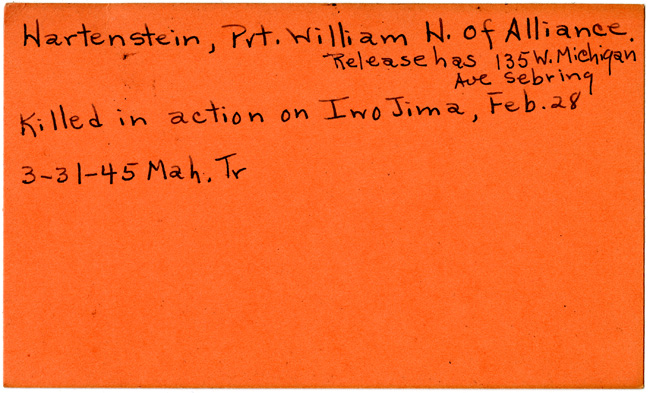 Hartenstein, Pvt. William H. of Alliance.
Release has 135 W. Michigan
Ave Sebring
Killed in action on Iwo Jima, Feb. 28
3-31-45 Mah. Tr